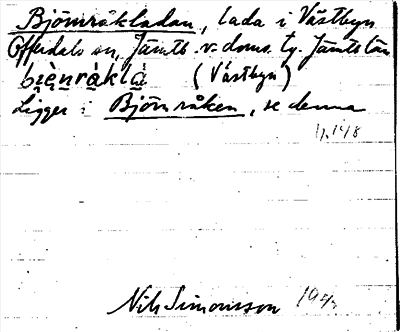 Björnråkladan, lada i Västbyn
Offerdals sn, Jämtl. v. doms. tg. Jämtl. län
biènråklà (Västbyn)
Ligger i Björnråken, se denna
Nils Simonsson